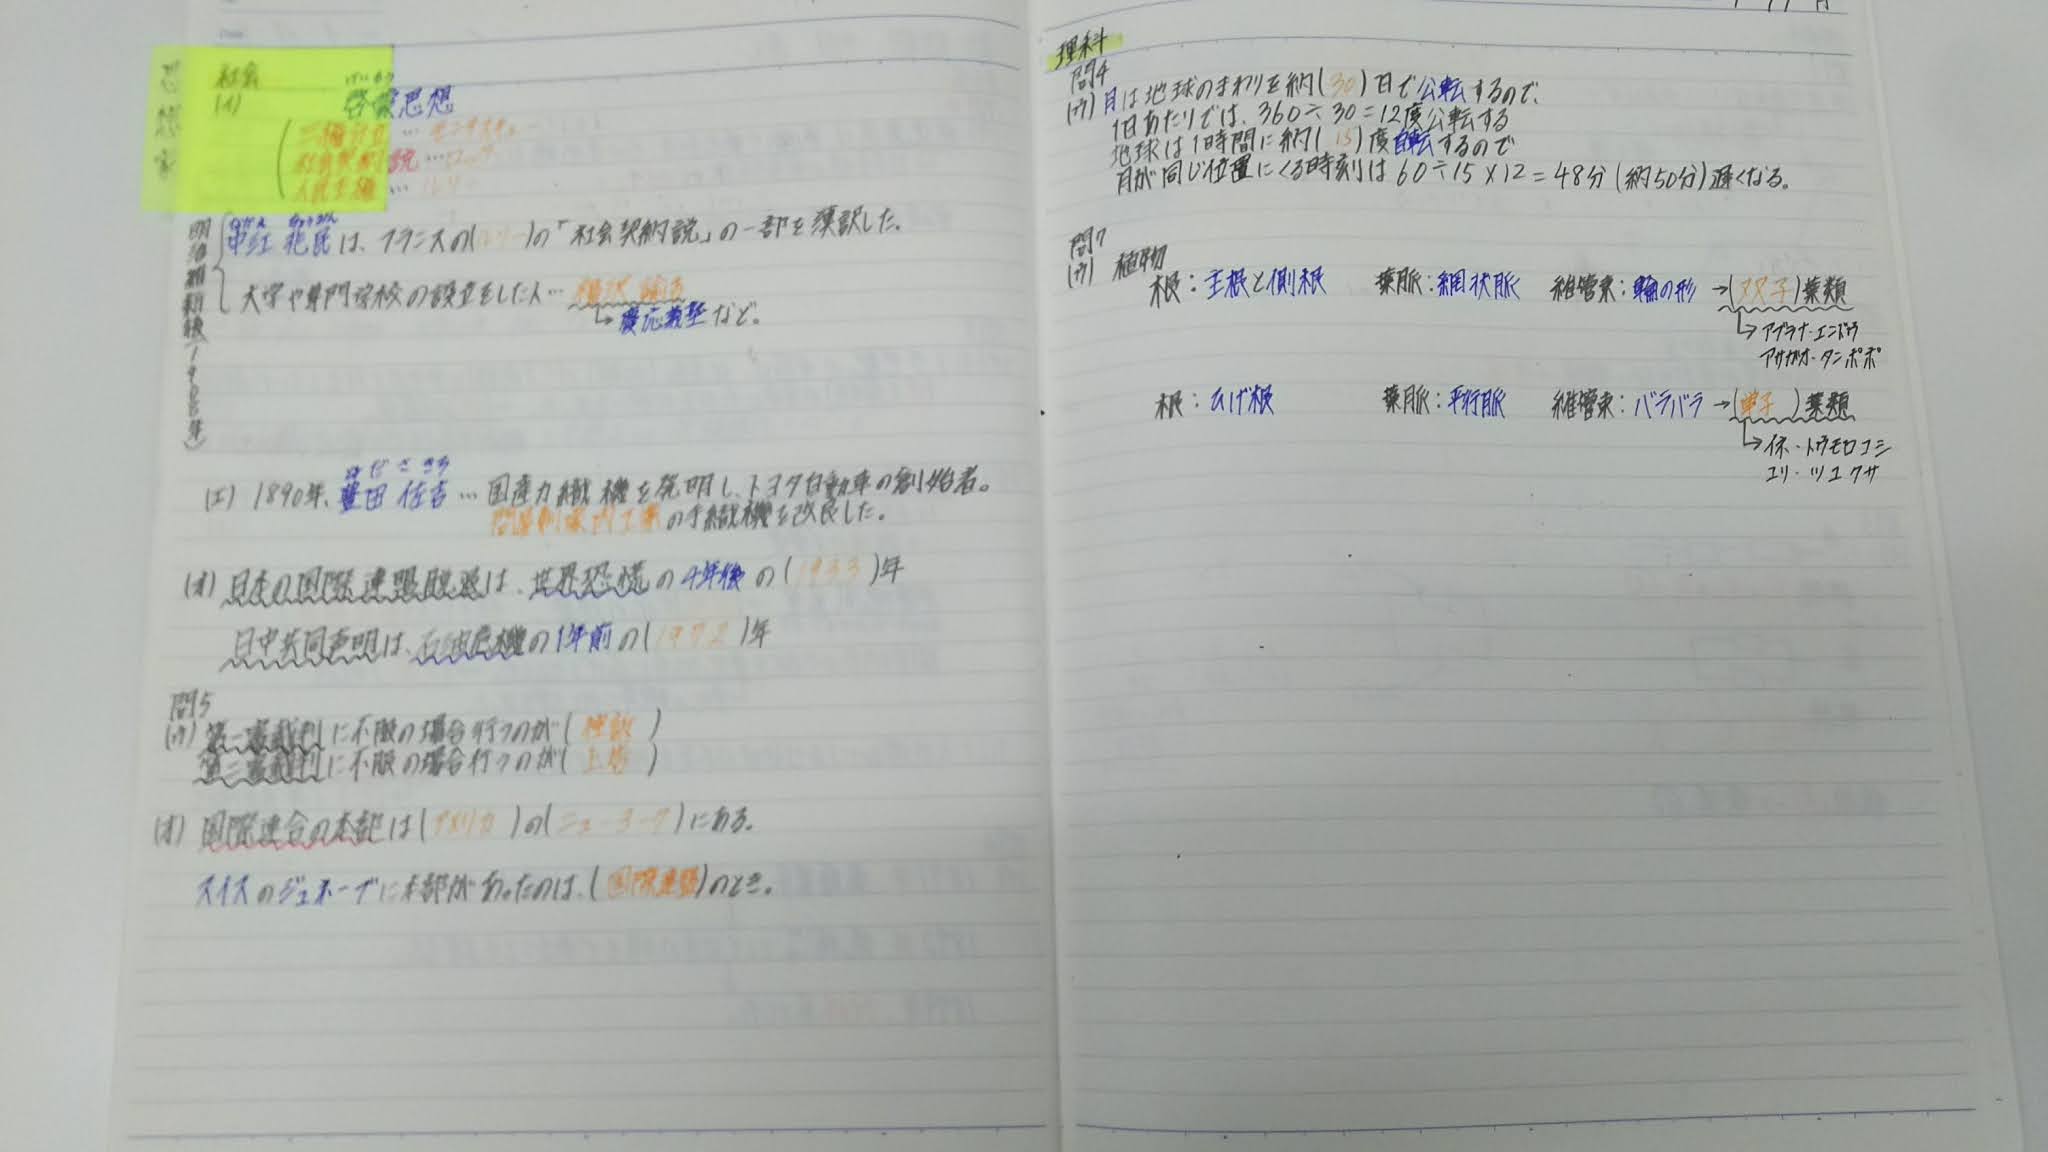 社会
(イ) 啓蒙思想
けいもう
思想家
三権分立…モンテスキュー
社会契約説…ロック
人民主権…ルソー
明治維新後(1968年)
なかえ ちょうみん
中江 兆民は、フランスの(ルソー)の「社会契約説」の一部を漢訳した。
大学や専門学校の設立をした人…福沢 諭吉
→慶応義塾など。
(エ) 1890年、豊田 佐吉…国産力織機を発明し、トヨタ自動車の創始者。
問屋制家内工業の手織機を改良した。
(オ) 日本の国際連盟脱退は、世界恐慌の4年後の(1933)年
日中共同声明は、石油危機の1年前の(1972)年
問5
(ウ) 第一審裁判に不服の場合行うのが(控訴)
第二審裁判に不服の場合行うのが(上告)
(オ) 国際連合の本部は(アメリカ)の(ニューヨーク)にある。
スイスのジュネーブに本部があったのは、(国際連盟)のとき。
理科
問4
(ウ) 月は地球のまわりを納(30)日で公転するので、
1日あたりでは、360÷30=12度公転する
地球は1時間に納(15)度自転するので
月が同じ位置にくる時刻は60÷15×12=48分(約50分)遅くなる。
問7
(ウ) 植物
根:主根と側根 葉脈:網状脈 維管束:輪の形→(双子)葉類
→アブラナ・エンドウ
アサガオ・タンポポ
根:ひげ根 葉脈:平行脈 維管束:バラバラ→(単子)葉類
→イネ・トウモロコシ
ユリ・ツユクサ